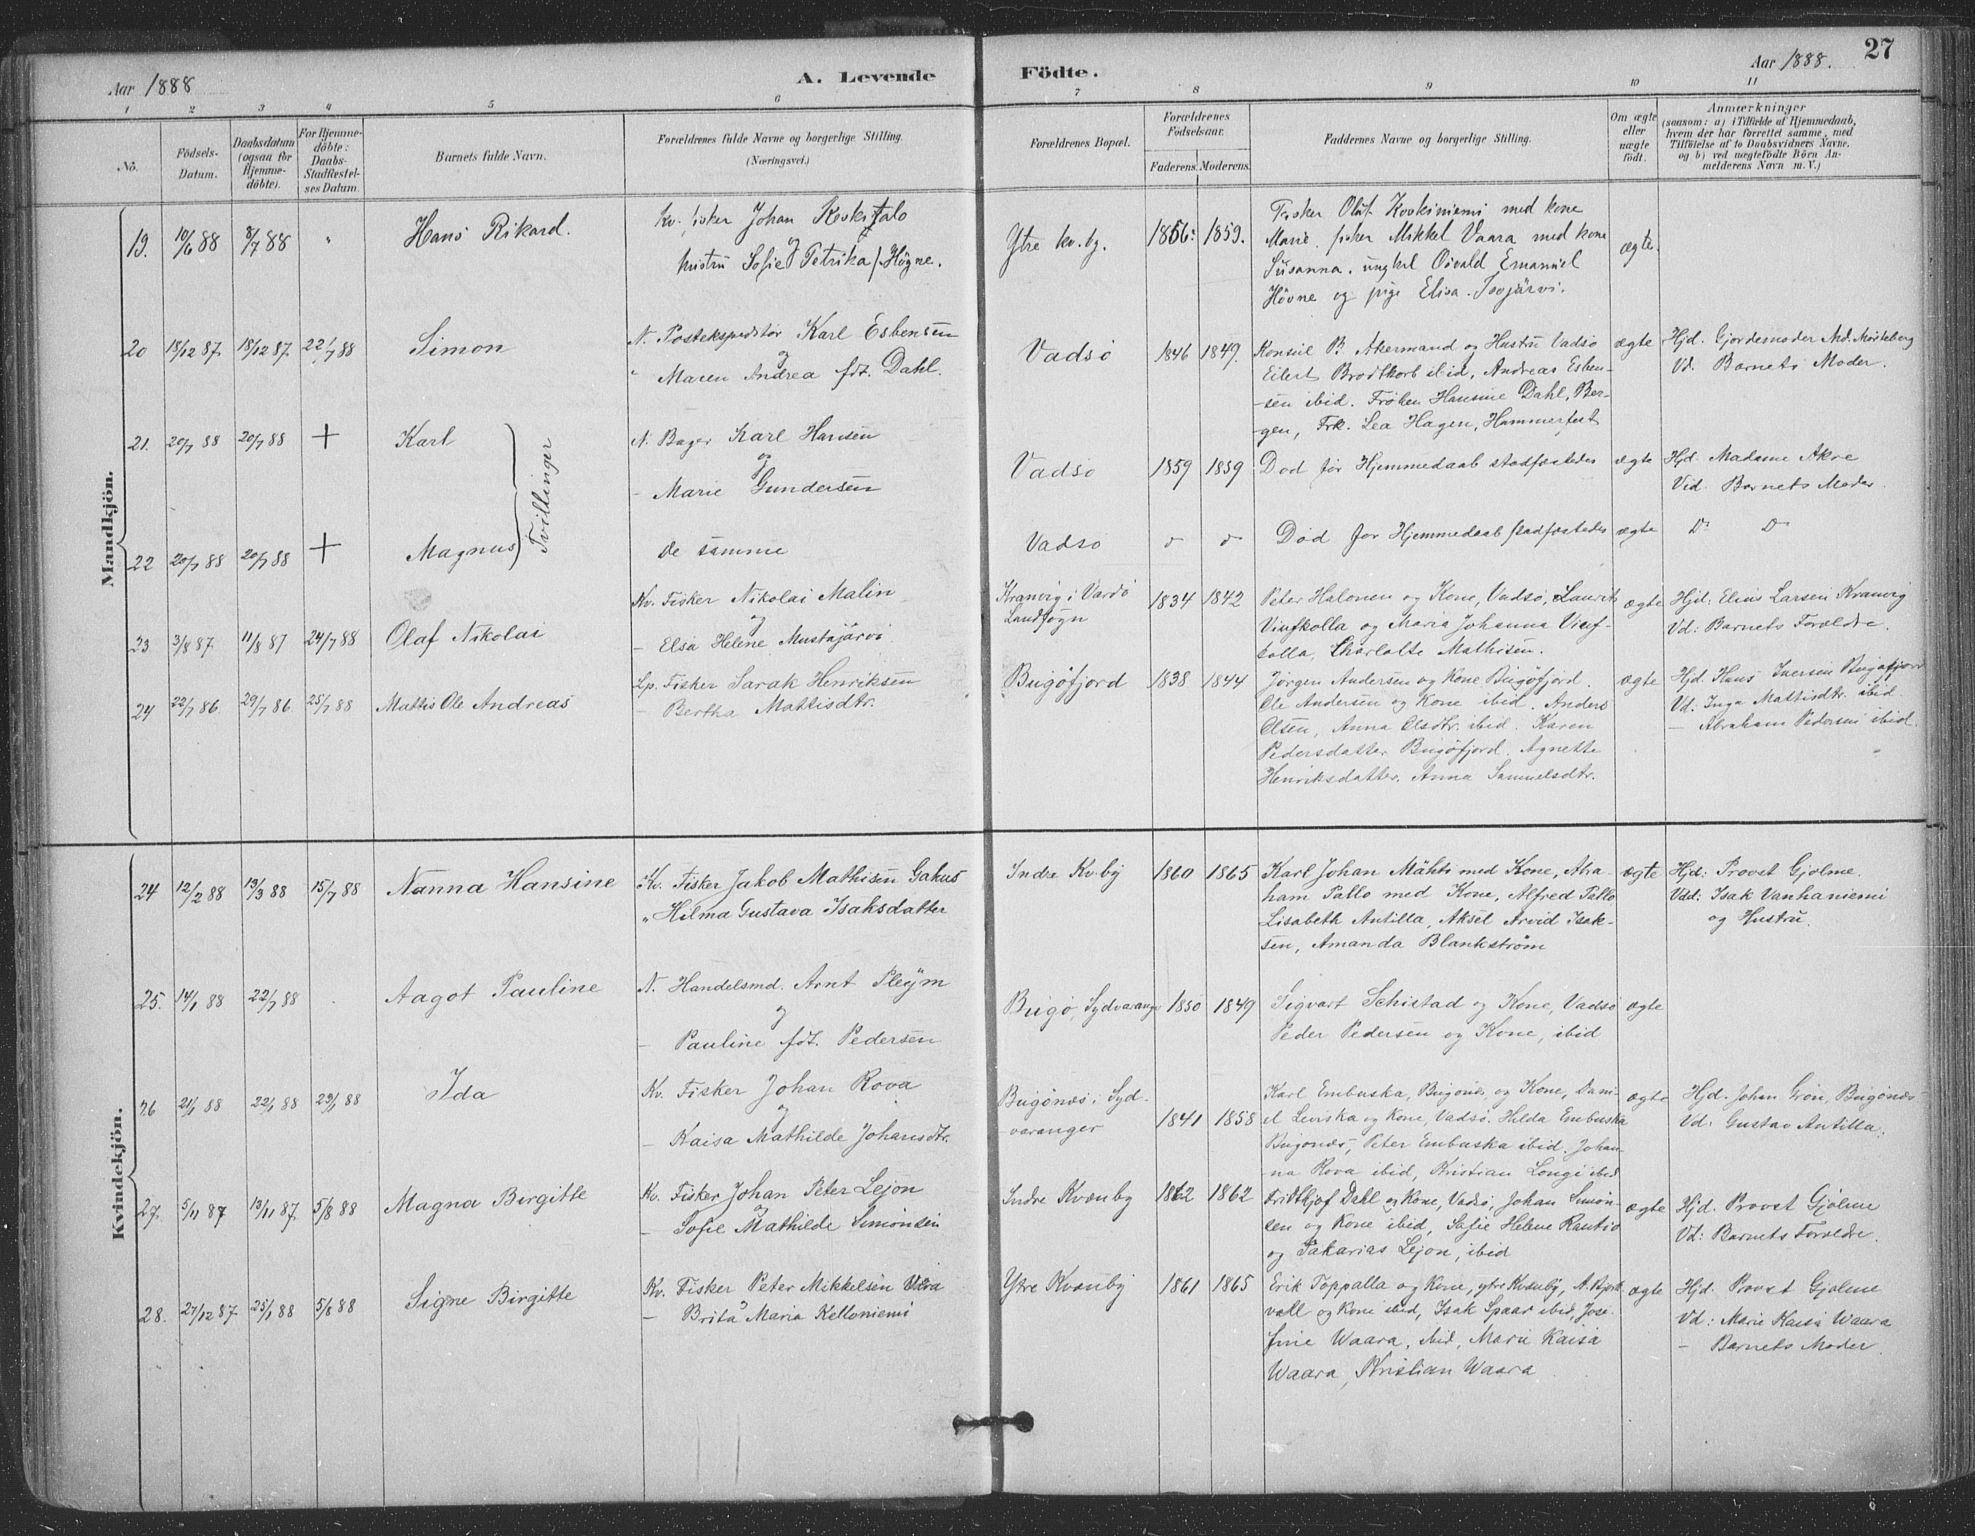 Aar 1888
A. Levende
Födte.
Aar 1888.
27
1 2 3 4 5 6 7 8 9 10 11
No.
Födsels-
Datum.
Daabsdatum
(ogsaa for
Hjemme-
döbte).
For Hjemme-
döbte:
Daabs-
Stadfæstel-
ses Datum.
Barnets fulde Navn.
Forældrenes fulde Navne og borgerlige Stilling.
(Næringsvei.)
Forældrenes Bopæl.
Forældrenes
Födselsaar.
Faderens. Moderens.
Faddernes Navne og borgerlige Stilling.
Om ægte
eller
uægte
födt.
Anmærkninger
(saasom: a) i Tilfælde af Hjemmedaab,
hvem der har forrettet samme, med
Tilföielse af to Daabsvidners Navne,
og b) ved uægtefödte Börn An-
melderens Navn m. V.)
Mandkjön.
19. 10/6 88 8/7 88 " Hans Rikard.
Kv. fisker Johan Koskitalo
og
hustru Sofie Petrika f. Högne.
Ytre kv. by. 1856: 1859.
Fisker Oluf Koskiniemi med kone
Marie. fisker Mikkel Vaara med kone
Susanna. ungkl Osvald Emanuel
Hövne og pige Elisa Isojärvi.
ægte.
20 18/12 87. 18/12 87. 22/7 88 Simon
N. Postekspeditör Karl Esbensen
og
" Maren Andrea fdt. Dahl.
Vadsö 1846 1849.
Konsul B. Akermand og Hustru Vadsö
Eilert Brodtkorb ibid, Andreas Esben-
sen ibid. Fröken Hansine Dahl, Ber-
gen, Frk. Lea Hagen, Hammerfest
ægte
Hjd. Gjordemoder Md. Morteberg
Vd. Barnets Moder.
21. 20/7 88 20/7 88 + Karl
Tvillinger
N. Bager Karl Hansen
og
- Marie Gundersen
Vadsö 1859 1859 Död för Hjemmedaab stadfæstedes ægte
Hjd. Madame Akre
Vid. Barnets Moder.
22 20/7 88 20/7 88 + Magnus
De samme
Vadsö Död för Hjemmedaab stadfæstedes ægte Do Do
23 3/8 87. 11/8 87 24/7 88 Olaf Nikolai
Kv. Fisker Nikolai Malin
og
- Elsa Helene Mustajärvi
Kramvig i Vardö
Landsogn
1834 1842
Peter Halonen og Kone, Vadsö, Laurits
Viufkolla og Maria Johanna Viuf-
kolla, Charlotte Mathisen.
ægte
Hjd: Elias Larsen Kramvig
Vd: Barnets Forældre.
24 22/7 86. 29/7 86. 25/7 88 Mattis Ole Andreas
Lp. Fisker Sarak Henriksen
- Bertha Mattisdtr.
Bugöfjord 1838 1844
Jörgen Andersen og Kone Bugöfjord.
Ole Andersen og Kone ibid. Anders
Olsen, Anna Olsdtr. ibid. Karen
Pedersdatter Bugöfjord. Agnette
Henriksdatter. Anna Samuelsdtr.
ægte
Hjd. Hans Iversen Bugöfjord
Vd: Inga Mattisdtr. ibid.
- Abraham Pedersen ibid.
Kvindekjön.
24 12/2 88 19/3 88 15/7 88 Nanna Hansine
Kv. Fisker Jakob Mathisen Gakus
" Hilma Gustava Isaksdatter
Indre Kvby 1860 1865
Karl Johan Mähti med Kone, Abra-
ham Pallo med Kone, Alfred Pallo
Lisabeth Antilla, Aksel Arvid Isak-
sen, Amanda Blankström
ægte
Hjd: Provst Gjölme.
Vdd: Isak Vanhaniemi
og Hustru.
25. 14/1 88 22/7 88 . Aagot Pauline
N. Handelsmd. Arnt Pleym
og
- Pauline fdt. Pedersen
Bugö, Sydvaranger 1850 1849
Sigvart Schistad og Kone, Vadsö
Peder Pedersen og Kone, ibid
ægte
26 21/1 88 22/1 88 29/7 88 Ida
Kv. Fisker Johan Rova
og
- Kaisa Mathilde Johansdtr.
Bugönæs i Syd-
varanger
1841 1858
Karl Embuska, Bugönæs og Kone, Dani-
el Lenska og Kone, Vadsö. Hilda Embuska
Bugönæs, Peter Embuska ibid. Johan-
na Rova ibid, Kristian Longi ibid
ægte
Hjd. Johan Grön, Bugönæs
Vd: Gustav Antilla.
27. 5/11 87 13/11 87. 5/8 88 Magna Birgitte
Kv. Fisker Johan Peter Lejon
og
- Sofie Mathilde Simonsen
Indre Kvænby 1862 1862
Fridthjof Dahl og Kone, Vadsö, Johan Simon-
sen og Kone ibid, Sofie Helene Rautio
og Sakarias Lejon, ibid
ægte
Hjd. Provst Gjölme
Vd: Barnets Forældre.
28. 27/12 87. 25/1 88 5/8 88 Signe Birgitte
Kv. Fisker Peter Mikkelsen
- Brita Maria Kelloniemi
Ytre Kvænby 1861 1865
Erik Toppalla og Kone, ytre Kvænby,
og Kone ibid, Isak Spaar ibid, Jose-
fine Waara, ibid, Marie Kaisa
Waara, Kristian Waara
ægte
Hjd. Provst Gjölme
Vd: Marie Kaisa Waara
- Barnets Moder.